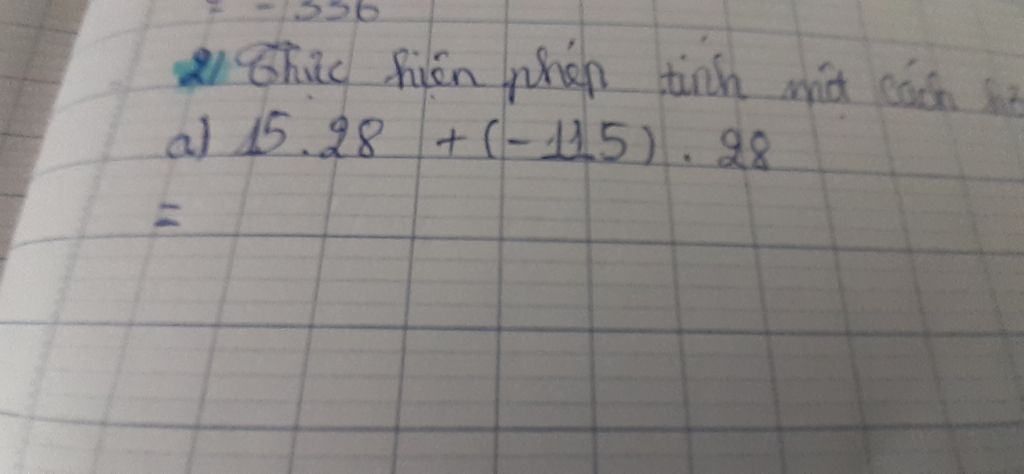 = - 336
2/ Thực hiện phép tính một cách
a) 15.28 + (-115) . 28
=